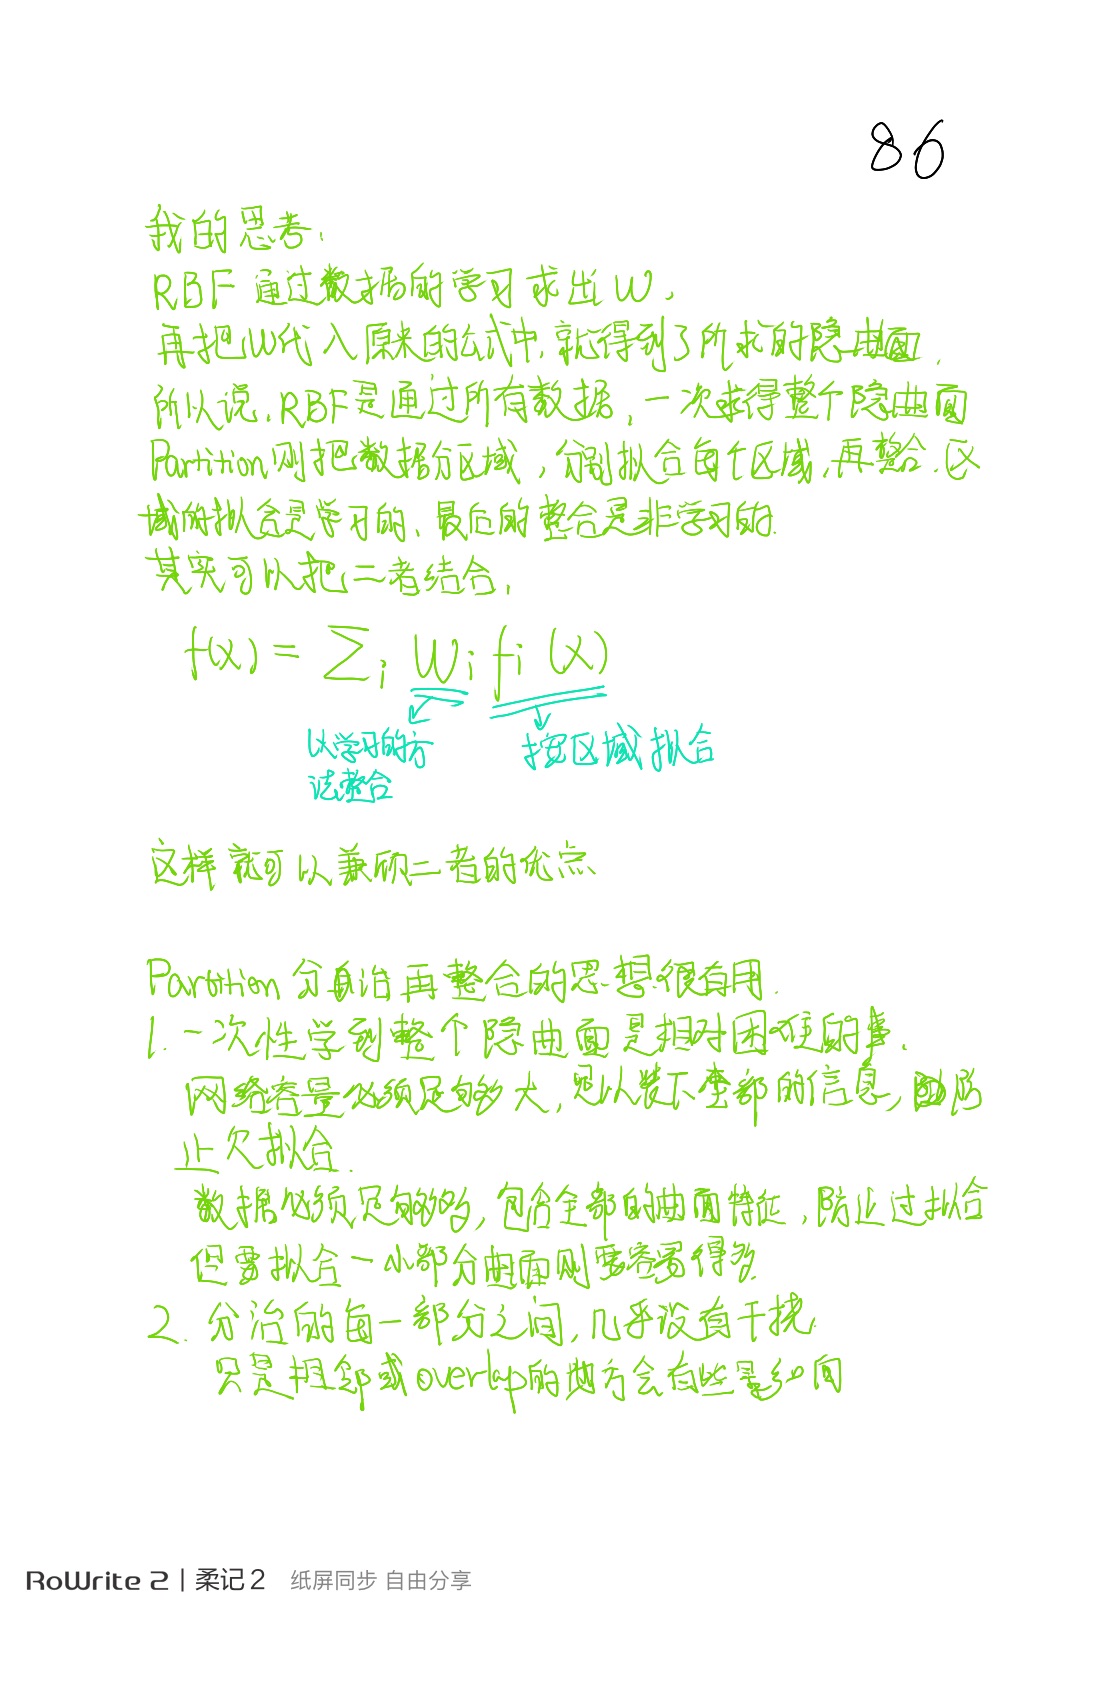 86
我的思考:
RBF 通过数据的学习求出W,
再把W代入原来的公式中,就得到了所求的隐曲面.
所以说,RBF是通过所有数据,一次求得整个隐曲面
Partition则把数据分区域,分别拟合每个区域,再整合.区
域的拟合是学习的,最后的整合是非学习的.
其实可以把二者结合,
f(x) = Σi Wi fi(x)
以学习的方
法整合
按区域拟合
这样就可以兼顾二者的优点
Partition 分自治再整合的思想很有用.
1.一次性学到整个隐曲面是相对困难的事,
网络容量必须足够大,足以装下全部的信息,防
止欠拟合.
数据必须足够多,包含全部的曲面特征,防止过拟合
但要拟合一小部分曲面则要容易得多.
2. 分治的每一部分之间,几乎没有干扰.
只是相邻或overlap的地方会有些影响
RoWrite 2 | 柔记 2 纸屏同步 自由分享